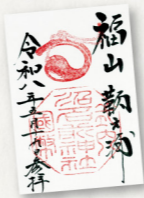 福山 鞆の浦
沼名前神社
令和八年五月 参拝